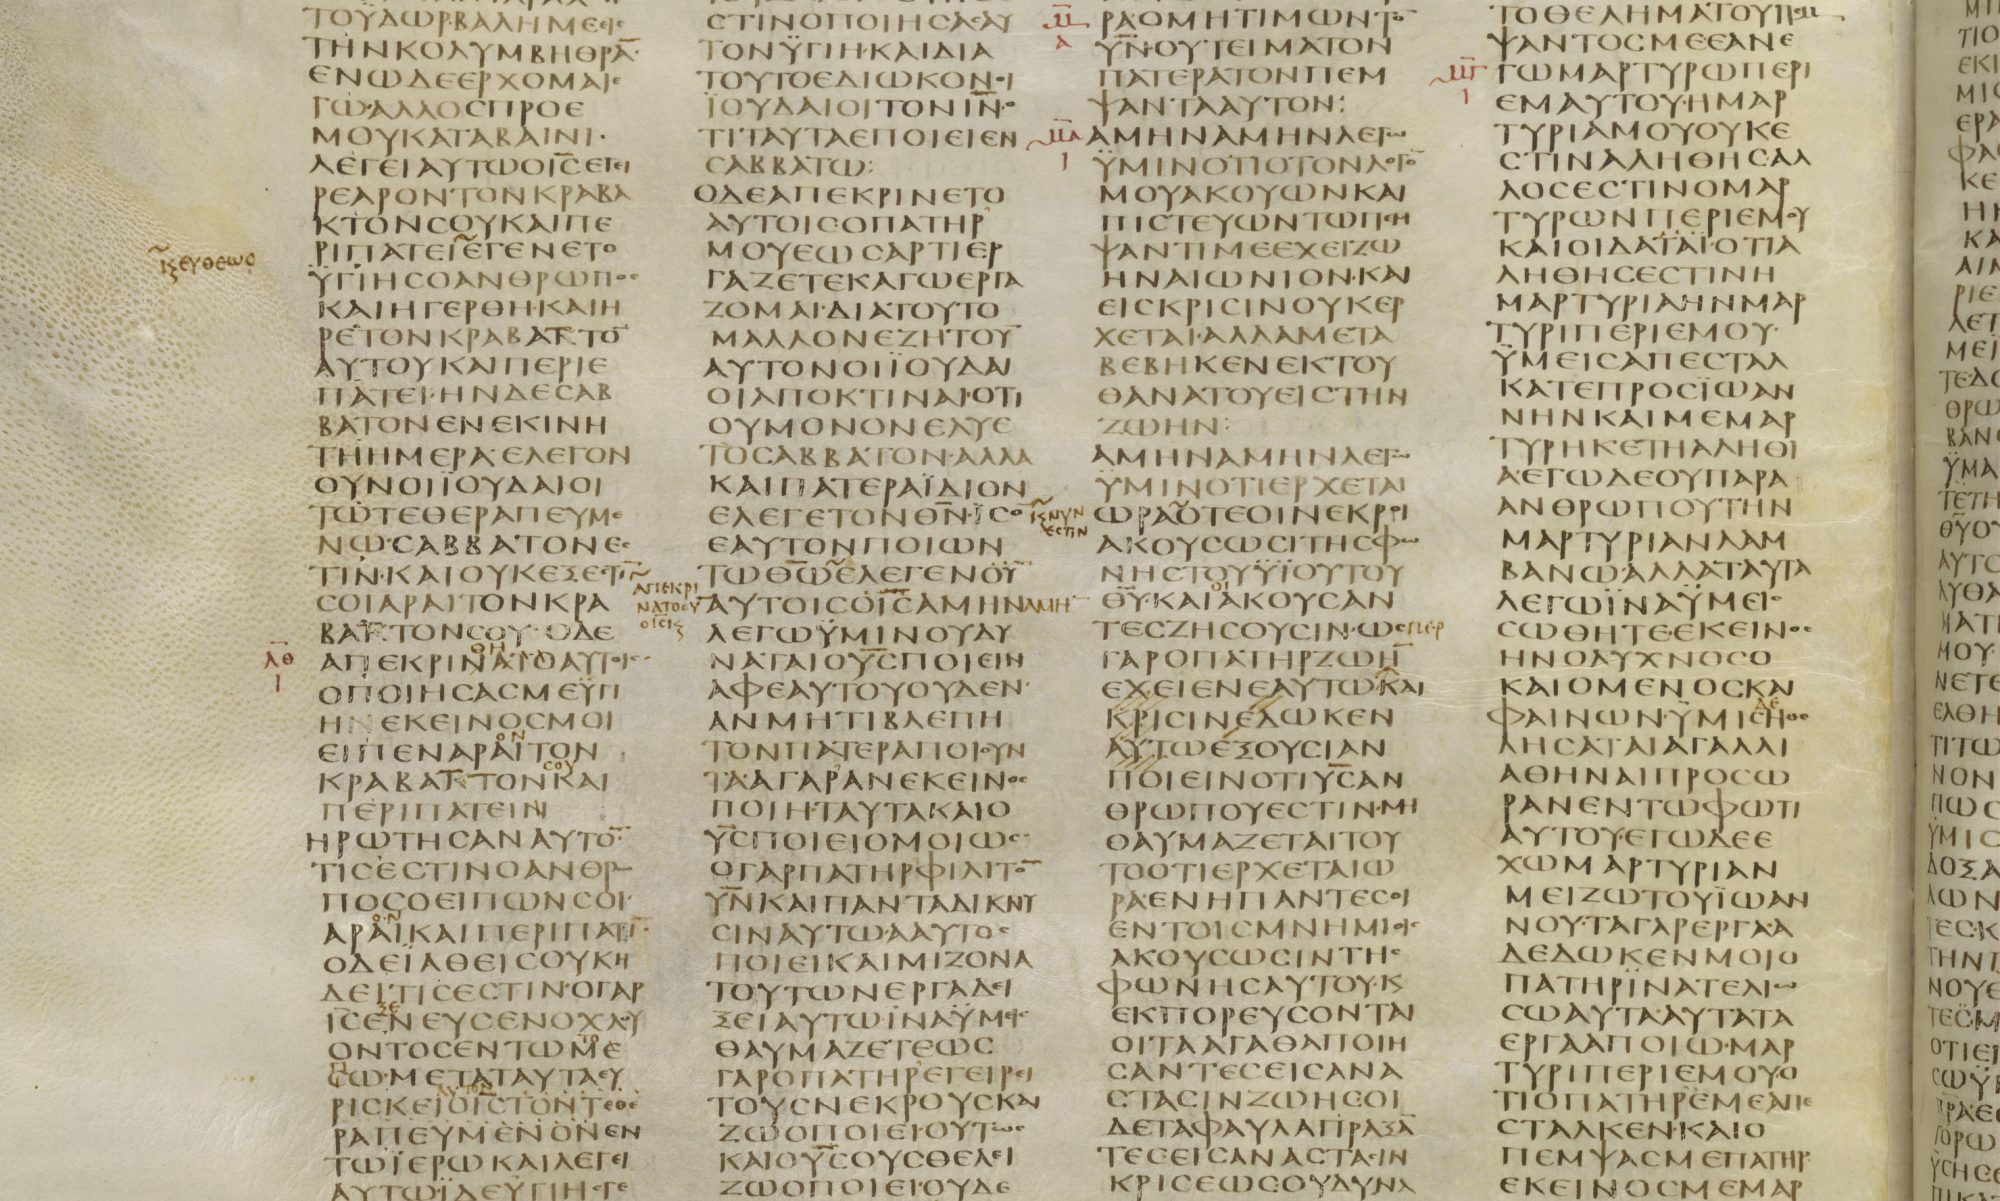 ΤΟΫΔΩΡ·ΒΑΛΗΜΕΕΙϹ
ΤΗΝΚΟΛΥΜΒΗΘΡΑ̅
ΕΝΩΔΕΕΡΧΟΜΑΙΕ
ΓΩ·ΑΛΛΟϹΠΡΟΕ
ΜΟΥΚΑΤΑΒΑΙΝΙ·
ΛΕΓΕΙΑΥΤΩΟΙ̅Ϲ̅ΕΓΕΙ
ΡΕΑΡΟΝΤΟΝΚΡΑΒΑ
ΚΤΟΝϹΟΥΚΑΙΠΕ
ΡΙΠΑΤΕΙΕΓΕΝΕΤΟ
ΚϚΕΥΘΕΩϹ
ΫΓΙΗϹΟΑΝΘΡΩΠΟϹ
ΚΑΙΗΓΕΡΘΗ·ΚΑΙΗ
ΡΕΤΟΝΚΡΑΒΑΤΤΟ̅
ΑΥΤΟΥΚΑΙΠΕΡΙΕ
ΠΑΤΕΙ·ΗΝΔΕϹΑΒ
ΒΑΤΟΝΕΝΕΚΙΝΗ
ΤΗΗΜΕΡΑ·ΕΛΕΓΟΝ
ΟΥΝΟΙΪΟΥΔΑΙΟΙ
ΤΩΤΕΘΕΡΑΠΕΥΜΕ
ΝΩ·ϹΑΒΒΑΤΟΝΕϹ
ΤΙΝ·ΚΑΙΟΥΚΕΞΕϹΤΙ̅
ϹΟΙΑΡΑΙΤΟΝΚΡΑ
ΒΑΤΤΟΝϹΟΥ·ΟΔΕ
ΛΘ
Ι
ΑΠΕΚΡΙΝΑΤΟΑΥΤΟΙϹ
ΟΠΟΙΗϹΑϹΜΕΫΓΙ
ΗΝΕΚΕΙΝΟϹΜΟΙ
ΕΙΠΕΝΑΡΑΙΤΟΝ
ΚΡΑΒΑΤΤΟΝΚΑΙ
ϹΟΥ
ΠΕΡΙΠΑΤΕΙΝ
ΗΡΩΤΗϹΑΝΑΥΤΟ̅
ΤΙϹΕϹΤΙΝΟΑΝΘΡΩ
ΠΟϹΟΕΙΠΩΝϹΟΙ·
ΑΡΑΙΚΑΙΠΕΡΙΠΑΤΙ̅
ΟΔΕΪΑΘΕΙϹΟΥΚΗ
ΔΕΙΤΙϹΕϹΤΙΝ·ΟΓΑΡ
Ι̅Ϲ̅ΕΝΕΥϹΕΝΟΧΛΟΥ
ΟΝΤΟϹΕΝΤΩΜΕ
ϹΩ·ΜΕΤΑΤΑΥΤΑΕΥ
ΡΙϹΚΕΙΟΙ̅Ϲ̅ΤΟΝΤΕΘΕ
ΡΑΠΕΥΜΕΝΟΝΕΝ
ΤΩΪΕΡΩΚΑΙΛΕΓΕΙ
ΑΥΤΩ·ΪΔΕΫΓΙΗϹΓΕ
ϹΤΙΝΟΠΟΙΗϹΑϹΑΥ
ΤΟΝΫΓΙΗ·ΚΑΙΔΙΑ
ΤΟΥΤΟΕΔΙΩΚΟΝΟΙ
ΪΟΥΔΑΙΟΙΤΟΝΙ̅Ν̅·Ο
ΤΙΤΑΥΤΑΕΠΟΙΕΙΕΝ
ϹΑΒΒΑΤΩ:
ΟΔΕΑΠΕΚΡΙΝΕΤΟ
ΑΥΤΟΙϹΟΠΑΤΗΡ
ΜΟΥΕΩϹΑΡΤΙΕΡ
ΓΑΖΕΤΕΚΑΓΩΕΡΓΑ
ΖΟΜΑΙ·ΔΙΑΤΟΥΤΟ
ΜΑΛΛΟΝΕΖΗΤΟΥ̅
ΑΥΤΟΝΟΙΪΟΥΔΑΙ
ΟΙΑΠΟΚΤΙΝΑΙ·ΟΤΙ
ΟΥΜΟΝΟΝΕΛΥΕ
ΤΟϹΑΒΒΑΤΟΝ·ΑΛΛΑ
ΚΑΙΠΑΤΕΡΑΪΔΙΟΝ
ΕΛΕΓΕΤΟΝΘ̅Ν̅·ΙϹΟ
ΕΑΥΤΟΝΠΟΙΩΝ
ΤΩΘ̅Ω̅ΕΛΕΓΕΝΟΥ̅
ΑΠΕΚΡΙ
ΝΑΤΟΟΥ
ΟΙϹΚϚ
ΑΥΤΟΙϹΟΙ̅Ϲ̅ΑΜΗΝΑΜΗ̅
ΛΕΓΩΫΜΙΝΟΥΔΥ
ΝΑΤΑΙΟΥ̅Ϲ̅ΠΟΙΕΙΝ
ΑΦΕΑΥΤΟΥΟΥΔΕΝ·
ΑΝΜΗΤΙΒΛΕΠΗ
ΤΟΝΠΑΤΕΡΑΠΟΙΟΥΝ
ΤΑ·ΑΓΑΡΑΝΕΚΕΙΝΟϹ
ΠΟΙΗ·ΤΑΥΤΑΚΑΙΟ
Υ̅Ϲ̅ΠΟΙΕΙΟΜΟΙΩϹ·
ΟΓΑΡΠΑΤΗΡΦΙΛΙΤΟ̅
Υ̅Ν̅ΚΑΙΠΑΝΤΑΔΙΚΝΥ
ϹΙΝΑΥΤΩ·ΑΑΥΤΟϹ
ΠΟΙΕΙΚΑΙΜΙΖΟΝΑ
ΤΟΥΤΩΝΕΡΓΑΔΕΙ
ΞΕΙΑΥΤΩ·ΪΝΑΫΜΕΙϹ
ΘΑΥΜΑΖΕΤΕΩϹ
ΓΑΡΟΠΑΤΗΡΕΓΕΙΡΕΙ
ΤΟΥϹΝΕΚΡΟΥϹΚΑΙ
ΖΩΟΠΟΙΕΙ·ΟΥΤΩϹ
ΚΑΙΟΥ̅Ϲ̅ΟΥϹΘΕΛΕΙ
ΖΩΟΠΟΙΕΙ·ΟΥΔΕ
Μ
Α
ΡΑΟΜΗΤΙΜΩΝΤΟ̅
Υ̅Ν̅·ΟΥΤΕΙΜΑΤΟΝ
ΠΑΤΕΡΑΤΟΝΠΕΜ
ΨΑΝΤΑΑΥΤΟΝ:
ΜΑ
Ι
ΑΜΗΝΑΜΗΝΛΕΓΩ
ΫΜΙΝΟΤΙΟΤΟΝΛΟΓΟ̅
ΜΟΥΑΚΟΥΩΝΚΑΙ
ΠΙϹΤΕΥΩΝΤΩΠΕΜ
ΨΑΝΤΙΜΕΕΧΕΙΖΩ
ΗΝΑΙΩΝΙΟΝ·ΚΑΙ
ΕΙϹΚΡΙϹΙΝΟΥΚΕΡ
ΧΕΤΑΙ·ΑΛΛΑΜΕΤΑ
ΒΕΒΗΚΕΝΕΚΤΟΥ
ΘΑΝΑΤΟΥΕΙϹΤΗΝ
ΖΩΗΝ:
ΑΜΗΝΑΜΗΝΛΕΓΩ
ΫΜΙΝΟΤΙΕΡΧΕΤΑΙ
ΚϚΝΥΝ
ΕϹΤΙΝ
ΩΡΑΟΤΕΟΙΝΕΚΡΟΙ
ΑΚΟΥϹΩϹΙΤΗϹΦΩ
ΝΗϹΤΟΥΫΪΟΥΤΟΥ
Θ̅Υ̅·ΚΑΙΑΚΟΥϹΑΝ
ΟΙ
ΤΕϹΖΗϹΟΥϹΙΝ·ΩϹΠΕΡ
ΓΑΡΟΠΑΤΗΡΖΩΗ̅
ΕΧΕΙΕΝΕΑΥΤΩΚΑΙ
ΚΡΙϹΙΝΕΔΩΚΕΝ
ΑΥΤΩΕΞΟΥϹΙΑΝ
ΠΟΙΕΙΝΟΤΙΥ̅Ϲ̅ΑΝ
ΘΡΩΠΟΥΕϹΤΙΝ·ΜΗ
ΘΑΥΜΑΖΕΤΑΙΤΟΥ
ΤΟΟΤΙΕΡΧΕΤΑΙΩ
ΡΑ·ΕΝΗΠΑΝΤΕϹΟΙ
ΕΝΤΟΙϹΜΝΗΜΙΟΙϹ
ΑΚΟΥϹΩϹΙΝΤΗϹ
ΦΩΝΗϹΑΥΤΟΥ·Κ
ΕΚΠΟΡΕΥϹΟΝΤΑΙ
ΟΙΤΑΑΓΑΘΑΠΟΙΗ
ϹΑΝΤΕϹΕΙϹΑΝΑ
ϹΤΑϹΙΝΖΩΗϹΟΙ
ΔΕΤΑΦΑΥΛΑΠΡΑΞΑ̅
ΤΕϹΕΙϹΑΝΑϹΤΑϹΙΝ
ΚΡΙϹΕΩϹΟΥΔΥΝΑ
ΤΟΘΕΛΗΜΑΤΟΥΠΕΜ
ΨΑΝΤΟϹΜΕΕΑΝΕ
ΜΓ
Ι
ΓΩΜΑΡΤΥΡΩΠΕΡΙ
ΕΜΑΥΤΟΥ·ΗΜΑΡ
ΤΥΡΙΑΜΟΥΟΥΚΕ
ϹΤΙΝΑΛΗΘΗϹ·ΑΛ
ΛΟϹΕϹΤΙΝΟΜΑΡ
ΤΥΡΩΝΠΕΡΙΕΜΟΥ
ΚΑΙΟΙΔΑΤΑΪ·ΟΤΙΑ
ΛΗΘΗϹΕϹΤΙΝΗ
ΜΑΡΤΥΡΙΑ·ΗΝΜΑΡ
ΤΥΡΙΠΕΡΙΕΜΟΥ·
ΫΜΕΙϹΑΠΕϹΤΑΛ
ΚΑΤΕΠΡΟϹΪΩΑΝ
ΝΗΝΚΑΙΜΕΜΑΡ
ΤΥΡΗΚΕΤΗΑΛΗΘΙ
Α·ΕΓΩΔΕΟΥΠΑΡΑ
ΑΝΘΡΩΠΟΥΤΗΝ
ΜΑΡΤΥΡΙΑΝΛΑΜ
ΒΑΝΩ·ΑΛΛΑΤΑΥΤΑ
ΛΕΓΩΪΝΑΫΜΕΙϹ
ϹΩΘΗΤΕ·ΕΚΕΙΝΟϹ
ΗΝΟΛΥΧΝΟϹΟ
ΚΑΙΟΜΕΝΟϹΚΑΙ
ΦΑΙΝΩΝ·ΫΜΙϹΗΘΕ
ΔΕ
ΛΗϹΑΤΑΙΑΓΑΛΛΙ
ΑΘΗΝΑΙΠΡΟϹΩ
ΡΑΝΕΝΤΩΦΩΤΙ
ΑΥΤΟΥ·ΕΓΩΔΕΕ
ΧΩΜΑΡΤΥΡΙΑΝ
ΜΕΙΖΩΤΟΥΪΩΑΝ
ΝΟΥ·ΤΑΓΑΡΕΡΓΑ·Α
ΔΕΔΩΚΕΝΜΟΙΟ
ΠΑΤΗΡΪΝΑΤΕΛΙΩ
ϹΩΑΥΤΑ·ΑΥΤΑΤΑ
ΕΡΓΑΑΠΟΙΩ·ΜΑΡ
ΤΥΡΙΠΕΡΙΕΜΟΥΟ
ΤΙΟΠΑΤΗΡΕΜΕΑΠΕ
ϹΤΑΛΚΕΝ·ΚΑΙΟ
ΠΕΜΨΑϹΜΕΠΑΤΗΡ·
ΕΚΕΙΝΟϹΜΕΜΑΡ